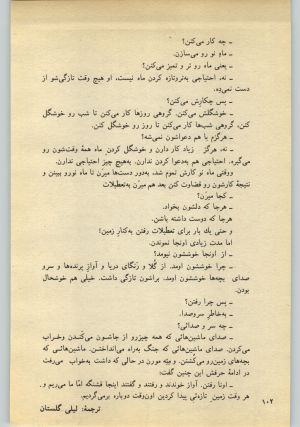 ـ چه کار می‌کنن؟
ـ ماهِ نو رو می‌سازن.
ـ یعنی ماه رو تر و تمیز می‌کنن؟
ـ نه، احتیاجی به‌تروتازه کردن ماه نیست، او هیچ وقت تازگی‌شو از
دست نمی‌ده.
ـ پس چکارش می‌کنن؟
ـ خوشگلش می‌کنن. گروهی روزها کار می‌کنن تا شب رو خوشگل
کنن، گروهی شب‌ها کار می‌کنن تا روز رو خوشگل کنن.
ـ هرگز با هم دعواشون نمی‌شه؟
ـ نه، هرگز زیاد کار دارن و خوشگل کردن ماه همهٔ وقت‌شون رو
می‌گیره. احتیاجی هم به‌دعوا کردن ندارن. به‌هیچ چیز احتیاجی ندارن.
ووقتی ماه نو کارش تموم شد، به‌دور دست‌ها میرن تا ماه نورو ببینن و
نتیجهٔ کارشون رو قضاوت کنن بعد هم میرن به‌تعطیلات
ـ کجا میرن؟
ـ هرجا که دلشون بخواد.
هرجا که دوست داشته باشن.
و حتی یك بار برای تعطیلات رفتن به‌کنارِ زمین!
اما مدت زیادی اونجا نموندن.
ـ از اونجا خوششون نیومد؟
ـ چرا خوششون اومد. از گُلا و رَنگای دریا و آوازِ پرنده‌ها و سرو
صدای بچه‌ها خوششون اومد. براشون تازگی داشت. خیلی هم خوشحال
بودن.
ـ پس چرا رفتن؟
ـ به‌خاطرِ سروصدا.
ـ چه سر و صدائی؟
ـ صدای ماشین‌هائی که همه چیزرو از جاشون می‌کندن وخراب
می‌کردن. صدای ماشین‌هائی که جنگ به‌راه می‌انداختن. ماشین‌هائی که
بچه‌های زمین‌رو می‌کُشتن. و بیّه مورن در حالی که داشت به‌خواب می‌رفت
در ادامهٔ حرفش این چنین گفت:
ـ اونا رفتن. آواز خوندند و رفتند و گفتند اینجا قشنگه امّا ما می‌ریم و.
هر وقت زمین تازه‌ئی پیدا کردین اون‌وقت دوباره برمی‌گردیم.
ترجمهٔ: لیلی گلستان
۱۰۲